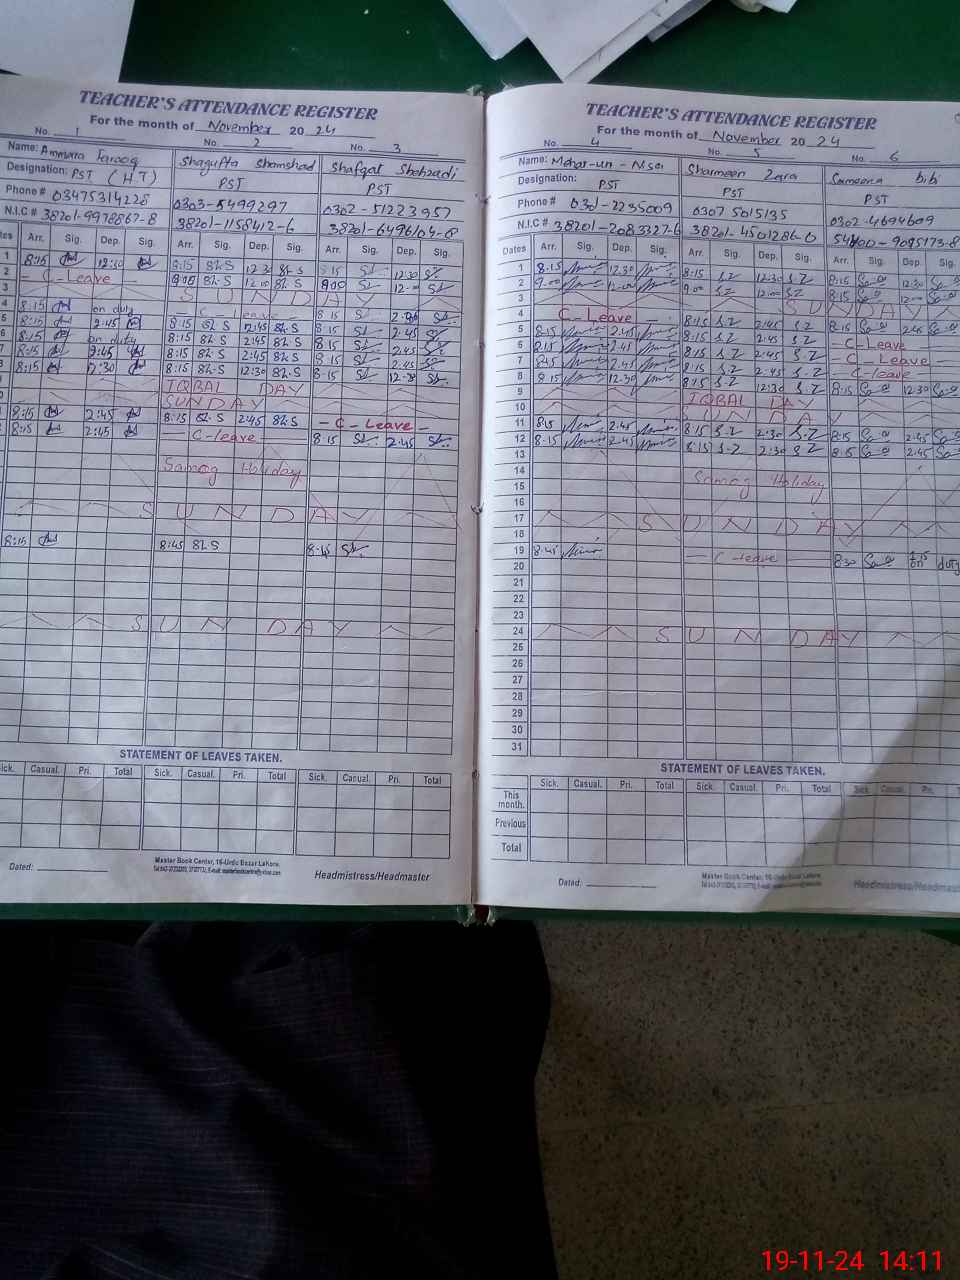 TEACHER'S ATTENDANCE REGISTER
For the month of November 2024
No. 1 No. 2 No. 3
Name: Ammara Farooq Shagufta Shamshad Shafqat Shehzadi
Designation: PST (H.T) PST PST
Phone # 03475314228 0303-5499297 0302-51223957
N.I.C # 38201-9978867-8 38201-1158412-6 38201-6496104-8
Arr. Sig. Dep. Sig. Arr. Sig. Dep. Sig. Arr. Sig. Dep. Sig.
1 8:15 12:30 8:15 12:30 8:15 12:30
2 C-Leave 9:00 12:00 9:00 12:00
3 SUNDAY
4 8:15 on duty C-Leave 8:15
5 8:15 2:45 8:15 2:45 8:15 2:45
6 8:15 on duty 8:15 2:45 8:15
7 8:15 2:45 8:15 2:45 8:15 2:45
8:15 12:30 8:15 12:30 8:15 12:30
IQBAL DAY
SUNDAY
8:15 2:45 8:15 2:45 C-Leave
8:15 2:45 C-leave 8:15 2:45
Samog Holiday
SUNDAY
8:15 8:45 8:45
SUNDAY
STATEMENT OF LEAVES TAKEN.
Sick. Casual. Pri. Total Sick. Casual. Pri. Total Sick. Casual. Pri. Total
Dated:
Master Book Center, 16-Urdu Bazar Lahore.
Headmistress/Headmaster
TEACHER'S ATTENDANCE REGISTER
For the month of November 2024
No. 4 No. 5 No. 6
Name: Mehar-un-Nisa Sharmeen Zara Sameena bibi
Designation: PST PST PST
Phone # 0301-2235009 0307 5015135 0302-4694609
N.I.C # 38201-2083327-6 38201-4501286-0
Dates Arr. Sig. Dep. Sig. Arr. Sig. Dep. Sig. Arr. Sig. Dep. Sig.
1 8.15 12.30 8:15 S.Z 12:30 S.Z 8:15 12:30
2 9.00 12.00 9:00 S.Z 12:00 S.Z 8:15 12:00
3 SUNDAY
4 C-Leave
5 8.15 2.45 8:15 S.Z 2:45 S.Z 8:15 2:45
6 8.15 2.45 8:15 S.Z 2:45 S.Z C-Leave
7 8.45 2.45 8:15 S.Z 2:45 S.Z C-Leave
8 8.15 12.30 8:15 S.Z 2:45 S.Z C-leave
9 8:15 S.Z 12:30 S.Z 8:15 12:30
IQBAL DAY
10 SUNDAY
11 8.15 2.45 8:15 S.Z 2:30 S.Z 8:15 2:45
12 8.15 2.45 8:15 S.Z 2:30 S.Z 8:15 2:45
13
14
15 Samog Holiday
16
17 SUNDAY
18
19 8.45 C-leave 8:30 on duty
20
21
22
23
24 SUNDAY
25
26
27
28
29
30
31
STATEMENT OF LEAVES TAKEN.
Sick. Casual. Pri. Total Sick. Casual. Pri. Total Sick. Casual. Pri.
This month.
Previous
Total
Dated:
Master Book Center, 16-Urdu Bazar Lahore
Headmistress/Headmaster
19-11-24 14:11